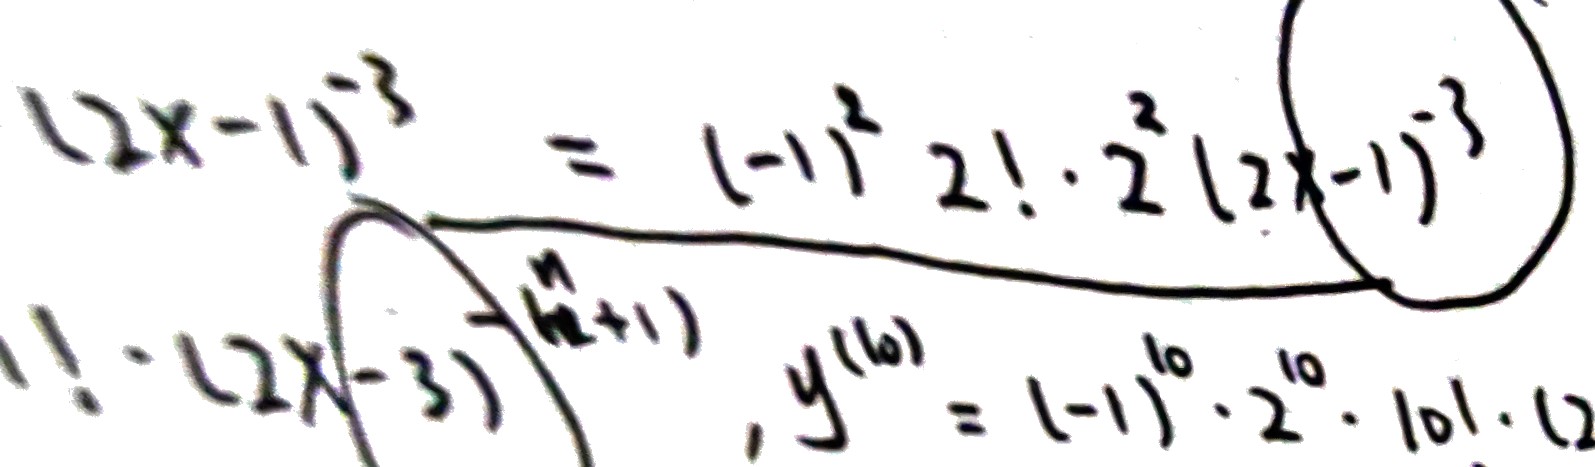 (2x-1)^{-3} = (-1)^2 2! · 2^2 (2x-1)^{-3}
! · (2x-3)^{-(n+1)} , y^{(10)} = (-1)^{10} · 2^{10} · 10! · (2